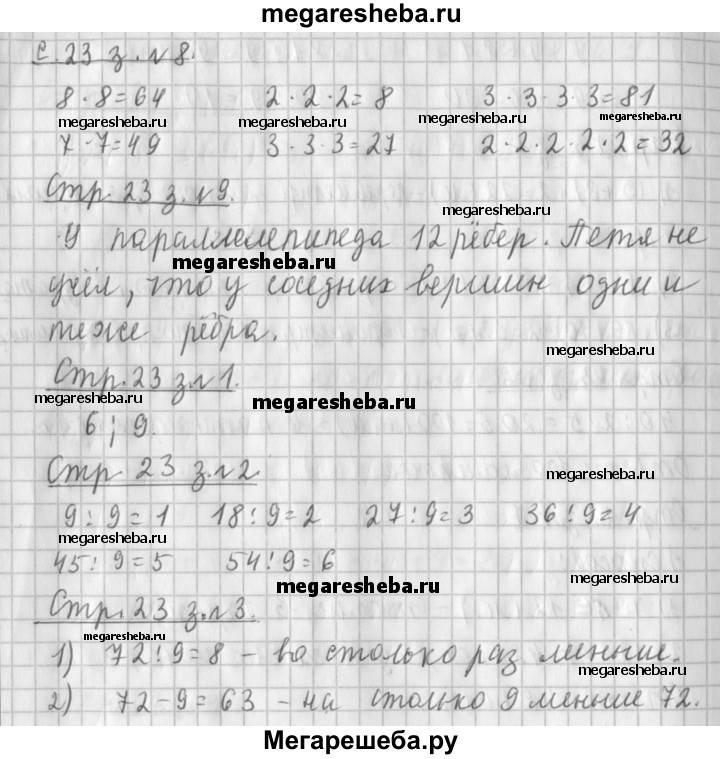 megaresheba.ru
с. 23 з. №8.
8 · 8 = 64 2 · 2 · 2 = 8 3 · 3 · 3 · 3 = 81
megaresheba.ru megaresheba.ru megaresheba.ru megaresheba.ru
7 · 7 = 49 3 · 3 · 3 = 27 2 · 2 · 2 · 2 · 2 = 32
Стр. 23 з. №9.
megaresheba.ru
У параллелепипеда 12 рёбер. Петя не
megaresheba.ru
учёл, что у соседних вершин одни и
те же рёбра.
megaresheba.ru
Стр. 23 з. №1.
megaresheba.ru megaresheba.ru
6 ; 9.
Стр. 23 з. №2.
megaresheba.ru
9 : 9 = 1 18 : 9 = 2 27 : 9 = 3 36 : 9 = 4
megaresheba.ru
45 : 9 = 5 54 : 9 = 6
megaresheba.ru megaresheba.ru
Стр. 23 з. №3.
megaresheba.ru
1) 72 : 9 = 8 – во столько раз меньше.
megaresheba.ru
2) 72 – 9 = 63 – на столько 9 меньше 72.
Мегарешеба.ру